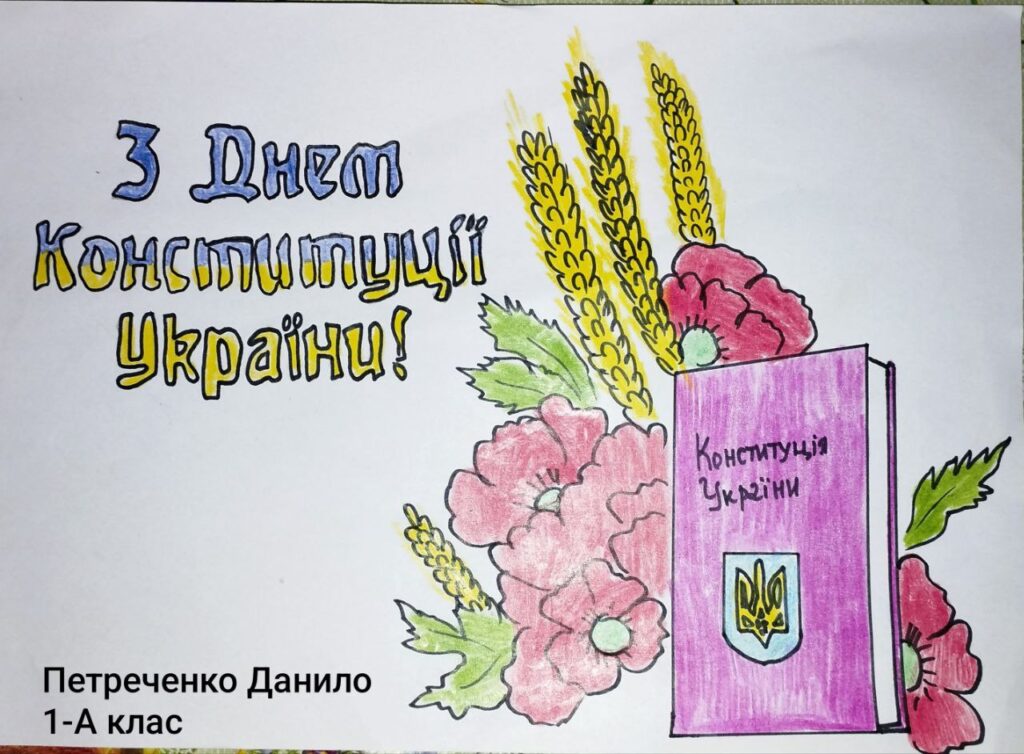 З Днем
Конституції
України!
Конституція
України
Петреченко Данило
1-А клас